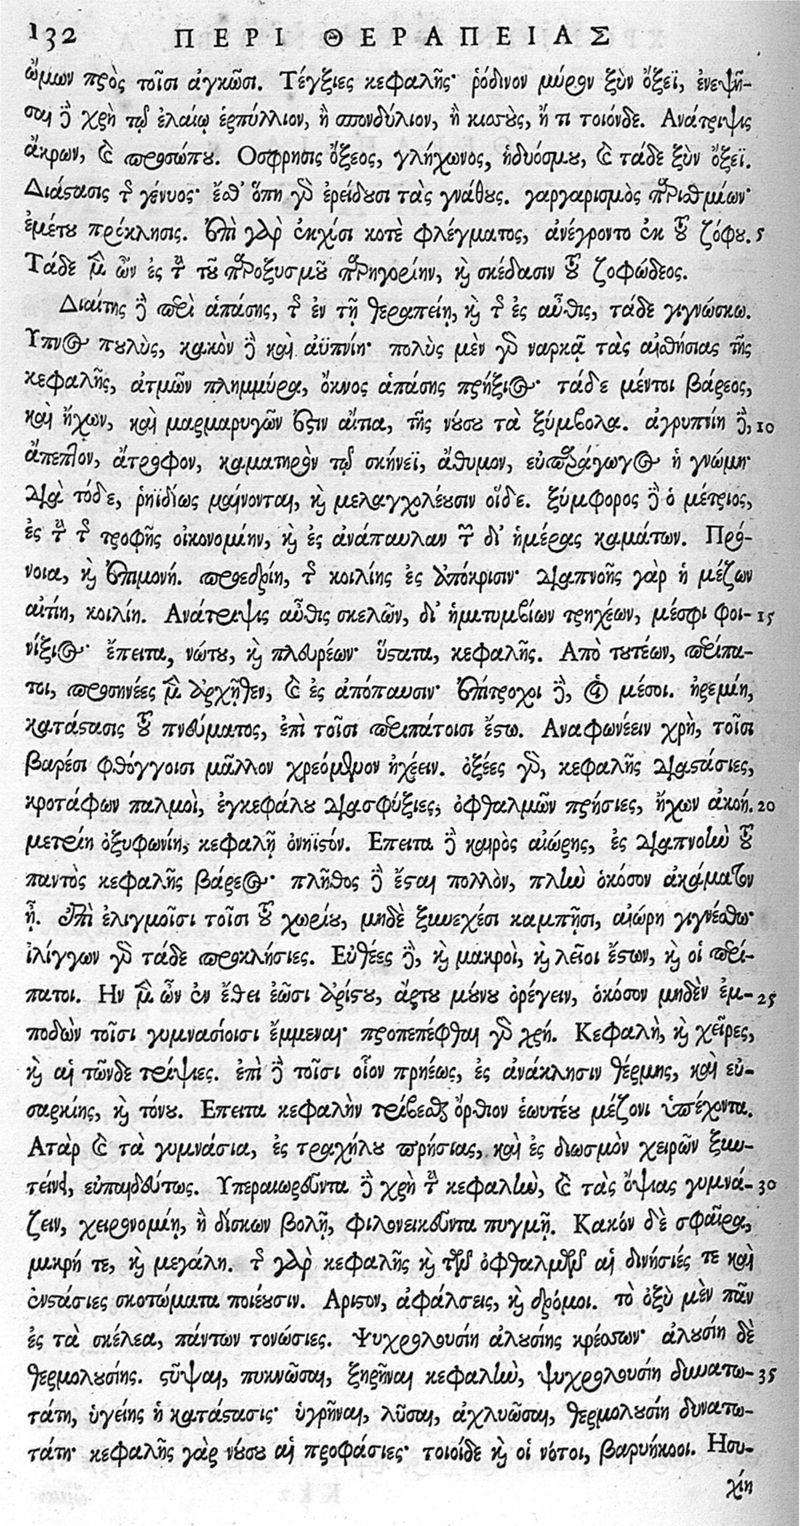 132 ΠΕΡΙ ΘΕΡΑΠΕΙΑΣ
ὤμων πρὸς τοῖσι ἀγκῶσι. Τέγξιες κεφαλῆς· ῥόδινον μύρον ξὺν ὄξεϊ, ἐνεψῆ-
σαι δὲ χρὴ τῷ ἐλαίῳ ἑρπύλλιον, ἢ σπονδύλιον, ἢ κισσὺς, ἤ τι τοιόνδε. Ανάτριψις
ἄκρων, καὶ προσώπου. Οσφρησις ὄξεος, γλήχωνος, ἡδυόσμου, καὶ τάδε ξὺν ὄξεϊ.
Διάστασις τῆς γένυος· ἔσθ' ὅπη γὰρ ἐρείδουσι τὰς γνάθους. γαργαρισμὸς παρισθμίων·
ἐμέτου πρόκλησις. ἐπὶ γὰρ ἐκχύσι κοτὲ φλέγματος, ἀνέγροντο ἐκ τοῦ ζόφου. 5
Τάδε μὲν ὦν ἐς τὴν τοῦ παροξυσμοῦ παρηγορίην, καὶ σκέδασιν τοῦ ζοφώδεος.
Διαίτης δὲ περὶ ἁπάσης, τῆς ἐν τῇ θεραπείῃ, καὶ τῆς ἐς αὖθις, τάδε γιγνώσκω.
Υπνος πουλὺς, κακὸν δὲ καὶ ἀϋπνίη· πολὺς μὲν γὰρ ναρκᾷ τὰς αἰσθήσιας τῆς
κεφαλῆς, ἀτμῶν πλημμύρα, ὄκνος ἁπάσης πρήξιος· τάδε μέντοι βάρεος,
καὶ ἤχων, καὶ μαρμαρυγῶν ἐστιν αἴτια, τῆς νούσου τὰ ξύμβολα. ἀγρυπνίη δὲ, 10
ἄπεπτον, ἄτροφον, καματηρὸν τῷ σκήνεϊ, ἄθυμον, εὐπαράγωγος ἡ γνώμη·
διὰ τόδε, ῥηϊδίως μαίνονται, καὶ μελαγχολέουσιν οἵδε. ξύμφορος δὲ ὁ μέτριος,
ἐς τὴν τῆς τροφῆς οἰκονομίην, καὶ ἐς ἀνάπαυλαν τῶν δι' ἡμέρας καμάτων. Πρό-
νοια, καὶ ἐπιμονή. προεδρίη, τῆς κοιλίης ἐς ἀπόκρισιν· διαπνοῆς γὰρ ἡ μέζων
αἰτίη, κοιλίη. Ανάτριψις αὖθις σκελῶν, δι' ἡμιτυμβίων τρηχέων, μέσφι φοι- 15
νίξιος· ἔπειτα, νώτου, καὶ πλευρέων· ὕστατα, κεφαλῆς. Απὸ τουτέων, περίπα-
τοι, προσηνέες μὲν ἀρχῆθεν, καὶ ἐς ἀπόπαυσιν· ἐπίτροχοι δὲ, οἱ μέσοι. ἠρεμίη,
κατάστασις τοῦ πνεύματος, ἐπὶ τοῖσι περιπάτοισι ἔστω. Αναφωνέειν χρὴ, τοῖσι
βαρέσι φθόγγοισι μᾶλλον χρεόμενον ἠχέειν. ὀξέες γὰρ, κεφαλῆς διαστάσιες,
κροτάφων παλμοὶ, ἐγκεφάλου διασφύξιες, ὀφθαλμῶν πρήσιες, ἤχων ἀκοή. 20
μετρίη ὀξυφωνίη, κεφαλῇ ὀνηϊστόν. Επειτα δὲ καιρὸς αἰώρης, ἐς διαπνοὴν τοῦ
παντὸς κεφαλῆς βάρεος· πλῆθος δὲ ἔσται πολλὸν, πλὴν ὁκόσον ἀκάματον
ᾖ. ἐπὶ ἑλιγμοῖσι τοῖσι τοῦ χωρίου, μηδὲ ξυνεχέσι καμπῇσι, αἰώρη γιγνέσθω·
ἰλίγγων γὰρ τάδε προκλήσιες. Εὐθέες δὲ, καὶ μακροὶ, καὶ λεῖοι ἔστων, καὶ οἱ περί-
πατοι. Ην μὲν ὦν ἐν ἔθει ἔωσι ἀρίστου, ἄρτου μούνου ὀρέγειν, ὁκόσον μηδὲν ἐμ- 25
ποδὼν τοῖσι γυμνασίοισι ἔμμεναι· προπεπέφθαι γὰρ χρή. Κεφαλὴ, καὶ χεῖρες,
καὶ αἱ τῶνδε τρίψιες. ἐπὶ δὲ τοῖσι οἷον πρηέως, ἐς ἀνάκλησιν θέρμης, καὶ εὐ-
σαρκίης, καὶ τόνου. Επειτα κεφαλὴν τρίβεσθαι ὄρθιον ἑωυτέου μέζονι ὑπέχοντα.
Ατὰρ καὶ τὰ γυμνάσια, ἐς τραχήλου πρήσιας, καὶ ἐς διωσμὸν χειρῶν ξυν-
τείνει, εὐπαιδεύτως. Υπεραιωρεῦντα δὲ χρὴ τὴν κεφαλὴν, καὶ τὰς ὄψιας γυμνά- 30
ζειν, χειρονομίῃ, ἢ δίσκων βολῇ, φιλονεικεῦντα πυγμῇ. Κακόν δὲ σφαῖρα,
μικρή τε, καὶ μεγάλη. τῆς γὰρ κεφαλῆς καὶ τῶν ὀφθαλμῶν αἱ δινήσιές τε καὶ
ἐνστάσιες σκοτώματα ποιέουσιν. Αριστον, ἀφάλσεις, καὶ δρόμοι. τὸ ὀξὺ μὲν πᾶν
ἐς τὰ σκέλεα, πάντων τονώσιες. Ψυχρολουσίη ἀλουσίης κρέσσων· ἀλουσίη δὲ
θερμολουσίης. στῦψαι, πυκνῶσαι, ξηρῆναι κεφαλὴν, ψυχρολουσίη δυνατω- 35
τάτη, ὑγείης ἡ κατάστασις· ὑγρῆναι, λῦσαι, ἀχλυῶσαι, θερμολουσίη δυνατω-
τάτη· κεφαλῆς γὰρ νούσου αἱ προφάσιες· τοιοίδε καὶ οἱ νότοι, βαρυήκοοι. Ησυ-
χίη